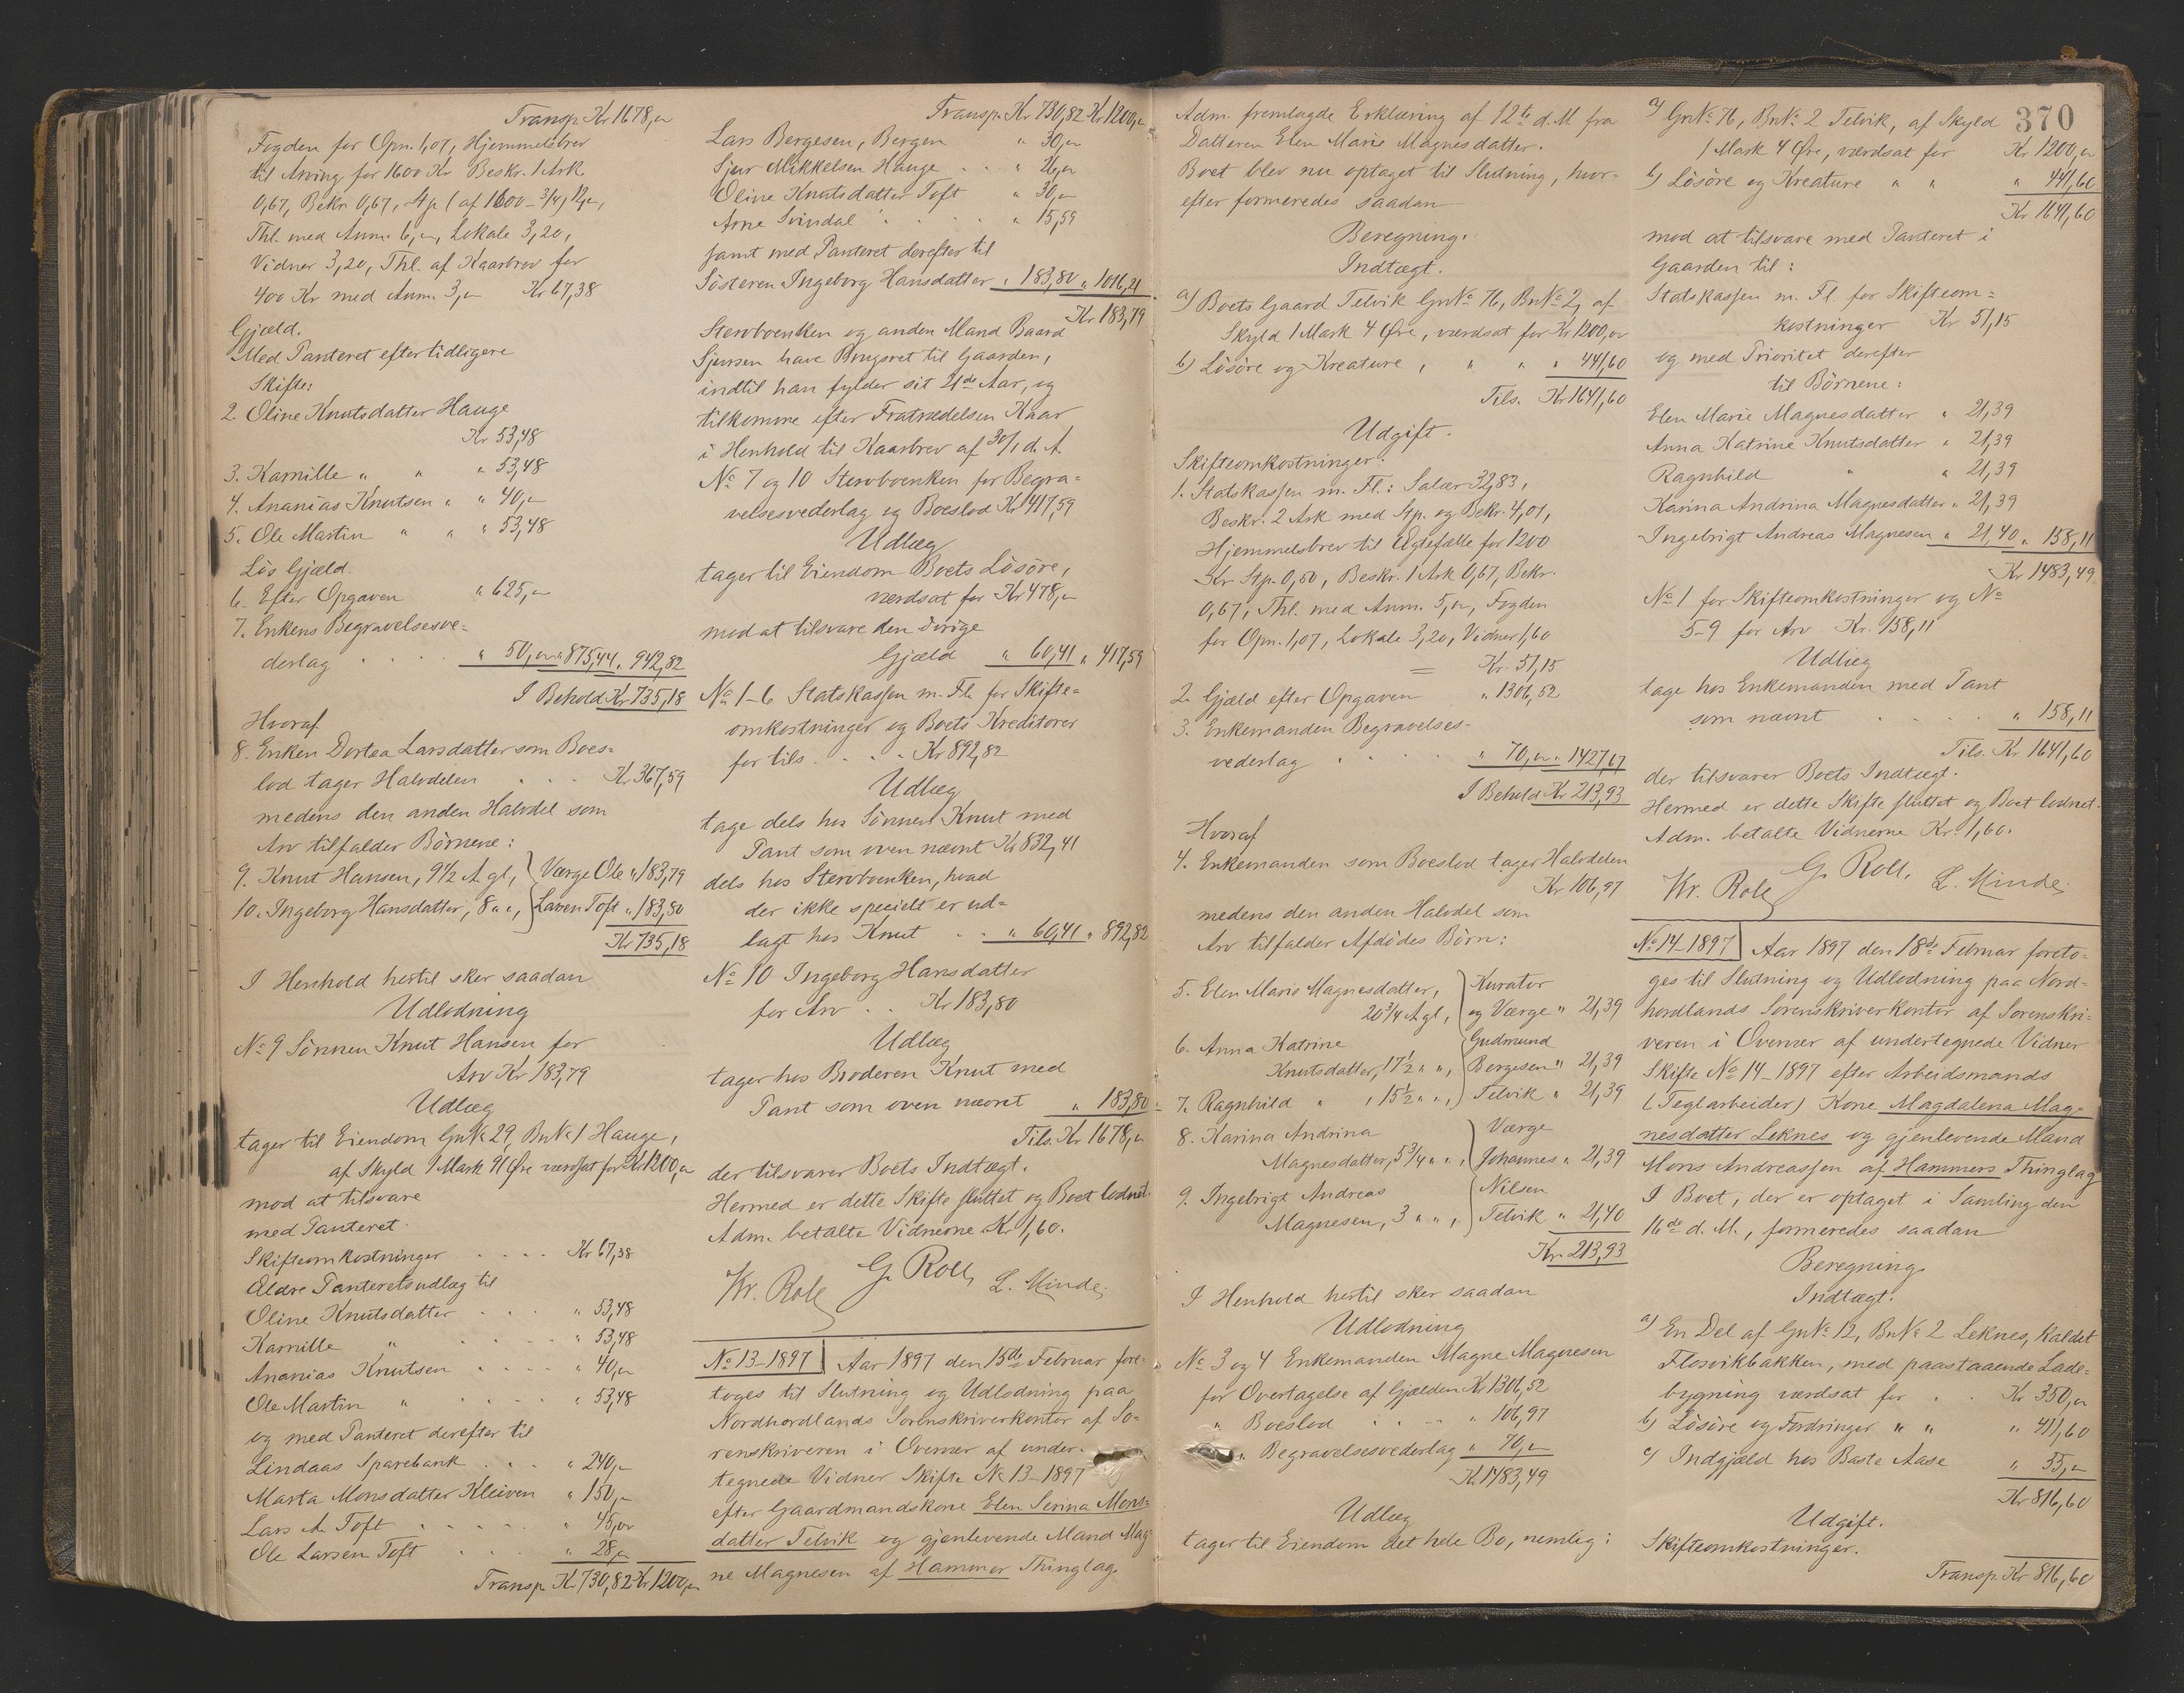 Transp. Kr 1678,"
Fogden for Opn. 1,07, Hjemmelsbrev
til Arving for 1600 Kr Beskr. 1 Ark
0,67, Bekr 0,67, Stp (af 1600 - 3/4) 12,",
Thl. med Anm. 6,", Lokale 3,20,
Vidner 3,20, Thl. af Kaarbrev for
400 Kr med Anm. 3," Kr 67,38
Gjæld.
Med Panteret efter tidligere
Skifte:
2. Oline Knutsdatter Hauge
Kr 53,48
3. Kamille " " " 53,48
4. Ananias Knutsen " " 40,"
5. Ole Martin " " " 53,48
Løs Gjæld.
6. Efter Opgaven " 625,"
7. Enkens Begravelsesve=
derlag . . . . " 50," " 875,44 " 942,82
I Behold Kr 735,18
Hvoraf
8. Enken Dortea Larsdatter som Boes=
lod tager Halvdelen . . . Kr 367,59
medens den anden Halvdel som
Arv tilfalder Børnene:
9. Knut Hansen, 9 1/2 A. gl, } Værge Ole " 183,79
10. Ingeborg Hansdatter, 8 " ", } Larsen Toft " 183,80
Kr 735,18
I Henhold hertil sker saadan
Udlodning
No 9 Sønnen Knut Hansen for
Arv Kr 183,79
Udlæg
tager til Eiendom GnNo 29, BnNo 1 Hauge,
af Skyld 1 Mark 91 Øre værdsat for Kr 1200,"
mod at tilsvare
med Panteret.
Skifteomkostninger . . . . Kr 67,38
Ældre Panteretsudlæg til
Oline Knutsdatter . . . " 53,48
Kamille " . . . . " 53,48
Ananias Knutsen . . . . " 40,"
Ole Martin " . . . . " 53,48
og med Panteret derefter til
Lindaas Sparebank . . . " 240,"
Marta Monsdatter Kleiven " 150,"
Lars A. Toft . . . . . " 45,"
Ole Larsen Toft . . . " 28,"
Transp. Kr. 730,82 Kr 1200,"
Transp. Kr. 730,82 Kr 1200,"
Lars Bergesen, Bergen " 30,"
Sjur Mikkelsen Hauge . . " 26,"
Oline Knutsdatter Toft " 30,"
Arne Svindal . . . . " 15,59
samt med Panteret derefter til
Søsteren Ingeborg Hansdatter " 183,80 " 1016,21
Kr 183,79
Stervboenken og anden Mand Baard
Sjursen have Brugsret til Gaarden,
indtil han fylder sit 21de Aar, og
tilkomme efter Fratrædelsen Kaar
i Henhold til Kaarbrev af 30/1 d. A.
No 7 og 10 Stervboenken for Begra=
velsesvederlag og Boeslod Kr 417,59
Udlæg
tager til Eiendom Boets Løsøre,
værdsat for Kr 478,"
mod at tilsvare den øvrige
Gjæld " 60,41 " 417,59
No 1-6 Statskassen m. Fl. for Skifte=
omkostninger og Boets Kreditorer
for tils. . . . Kr 892,82
Udlæg
tage dels hos Sønnen Knut med
Pant som oven nævnt Kr 832,41
dels hos Stervboenken, hvad
der ikke specielt er ud=
lagt hos Knut . . " 60,41 " 892,82
No 10 Ingeborg Hansdatter
for Arv . . Kr 183,80
Udlæg
tager hos Broderen Knut med
Pant som oven nævnt " 183,80
Tils. Kr. 1678,"
der tilsvarer Boets Indtægt.
Hermed er dette Skifte sluttet og Boet lodnet.
Adm. betalte Vidnerne Kr 1,60.
Kr. Role G. Roll, L. Minde
No 13-1897 Aar 1897 den 15de Februar fore=
toges til Slutning og Udlodning paa
Nordhordlands Sorenskriverkontor af So=
renskriveren i Overvær af under=
tegnede Vidner Skifte No 13-1897
efter Gaardmandskone Elen Serina Mons=
datter Telvik og gjenlevende Mand Mag=
ne Magnesen af Hammer Thinglag.
Adm. fremlagde Erklæring af 12te d. M. fra
Datteren Elen Marie Magnesdatter.
Boet blev nu optaget til Slutning, hvor=
efter formeredes saadan
Beregning.
Indtægt.
a) Boets Gaard Telvik GnNo 76, BnNo 2, af
Skyld 1 Mark 4 Øre, værdsat for Kr 1200,"
b) Løsøre og Kreature " " " " 441,60
Tils. Kr 1641,60
Udgift.
Skifteomkostninger.
1. Statskassen m. Fl.: Salær 32,83,
Beskr. 2 Ark med Stp. og Bekr. 4,01,
Hjemmelsbrev til Ægtefælle for 1200
Kr Stp. 0,50, Beskr. 1 Ark 0,67, Bekr.
0,67, Thl. med Anm. 5,", Fogden
for Opn. 1,07, Lokale 3,20, Vidner 1,60
= Kr. 51,15
2. Gjæld efter Opgaven " 1306,52
3. Enkemanden Begravelses=
vederlag . . . . " 70," " 1427,67
I Behold Kr 213,93
Hvoraf
4. Enkemanden som Boeslod tager Halvdelen
Kr 106,97
medens den anden Halvdel som
Arv tilfalder Afdødes Børn:
5. Elen Marie Magnesdatter, } Kurator
20 3/4 A gl, } og Værge " 21,39
6. Anna Katrine } Gudmund
Knutsdatter, 17 1/2 " ", } Bergesen " 21,39
7. Ragnhild " , 15 1/2 " ", } Telvik " 21,39
8. Karina Andrina } Værge
Magnesdatter, 5 3/4 " ", } Johannes " 21,39
9. Ingebrigt Andreas } Nilsen
Magnesen, 3 " ", } Telvik " 21,40
Kr. 213,93
I Henhold hertil sker saadan
Udlodning
No 3 og 4 Enkemanden Magne Magnesen
for Overtagelse af Gjælden Kr 1306,52
" Boeslod . . . . " 106,97
" Begravelsesvederlag " 70,"
Kr. 1483,49
Udlæg
tager til Eiendom det hele Bo, nemlig:
370
a) GnNo 76, BnNo 2 Telvik, af Skyld
1 Mark 4 Øre, værdsat for Kr 1200,"
b) Løsøre og Kreature " " " 441,60
Kr 1641,60
mod at tilsvare med Panteret i
Gaarden til:
Statskassen m. Fl. for Skifteom=
kostninger Kr 51,15
og med Prioritet derefter
til Børnene:
Elen Marie Magnesdatter " 21,39
Anna Katrine Knutsdatter " 21,39
Ragnhild " " 21,39
Karina Andrina Magnesdatter " 21,39
Ingebrigt Andreas Magnesen " 21,40 " 158,11
Kr 1483,49
No 1 for Skifteomkostninger og No
5-9 for Arv Kr. 158,11
Udlæg
tage hos Enkemanden med Pant
som nævnt . . . . . " 158,11
Tils. Kr. 1641,60
der tilsvarer Boets Indtægt.
Hermed er dette Skifte sluttet og Boet lodnet.
Adm. betalte Vidnerne Kr. 1,60.
Kr. Role G. Roll, L. Minde
No 14-1897 Aar 1897 den 18de Februar foreto=
ges til Slutning og Udlodning paa Nord=
hordlands Sorenskriverkontor af Sorenskri=
veren i Overvær af undertegnede Vidner
Skifte No 14-1897 efter Arbeidsmands
(Teglarbeider) Kone Magdalena Mag=
nesdatter Leknes og gjenlevende Mand
Mons Andreassen af Hammers Thinglag
I Boet, der er optaget i Samling den
16de d. M., formeredes saadan
Beregning
Indtægt.
a) En Del af GnNo 12, BnNo 2 Leknes, kaldet
Flosvikbakken, med paastaaende Lade=
bygning værdsat for . . Kr 350,"
b) Løsøre og Fordringer " " " 411,60
c) Indgjæld hos Baste Aase " 55,"
Kr 816,60
Udgift.
Skifteomkostninger.
Transp. Kr 816,60